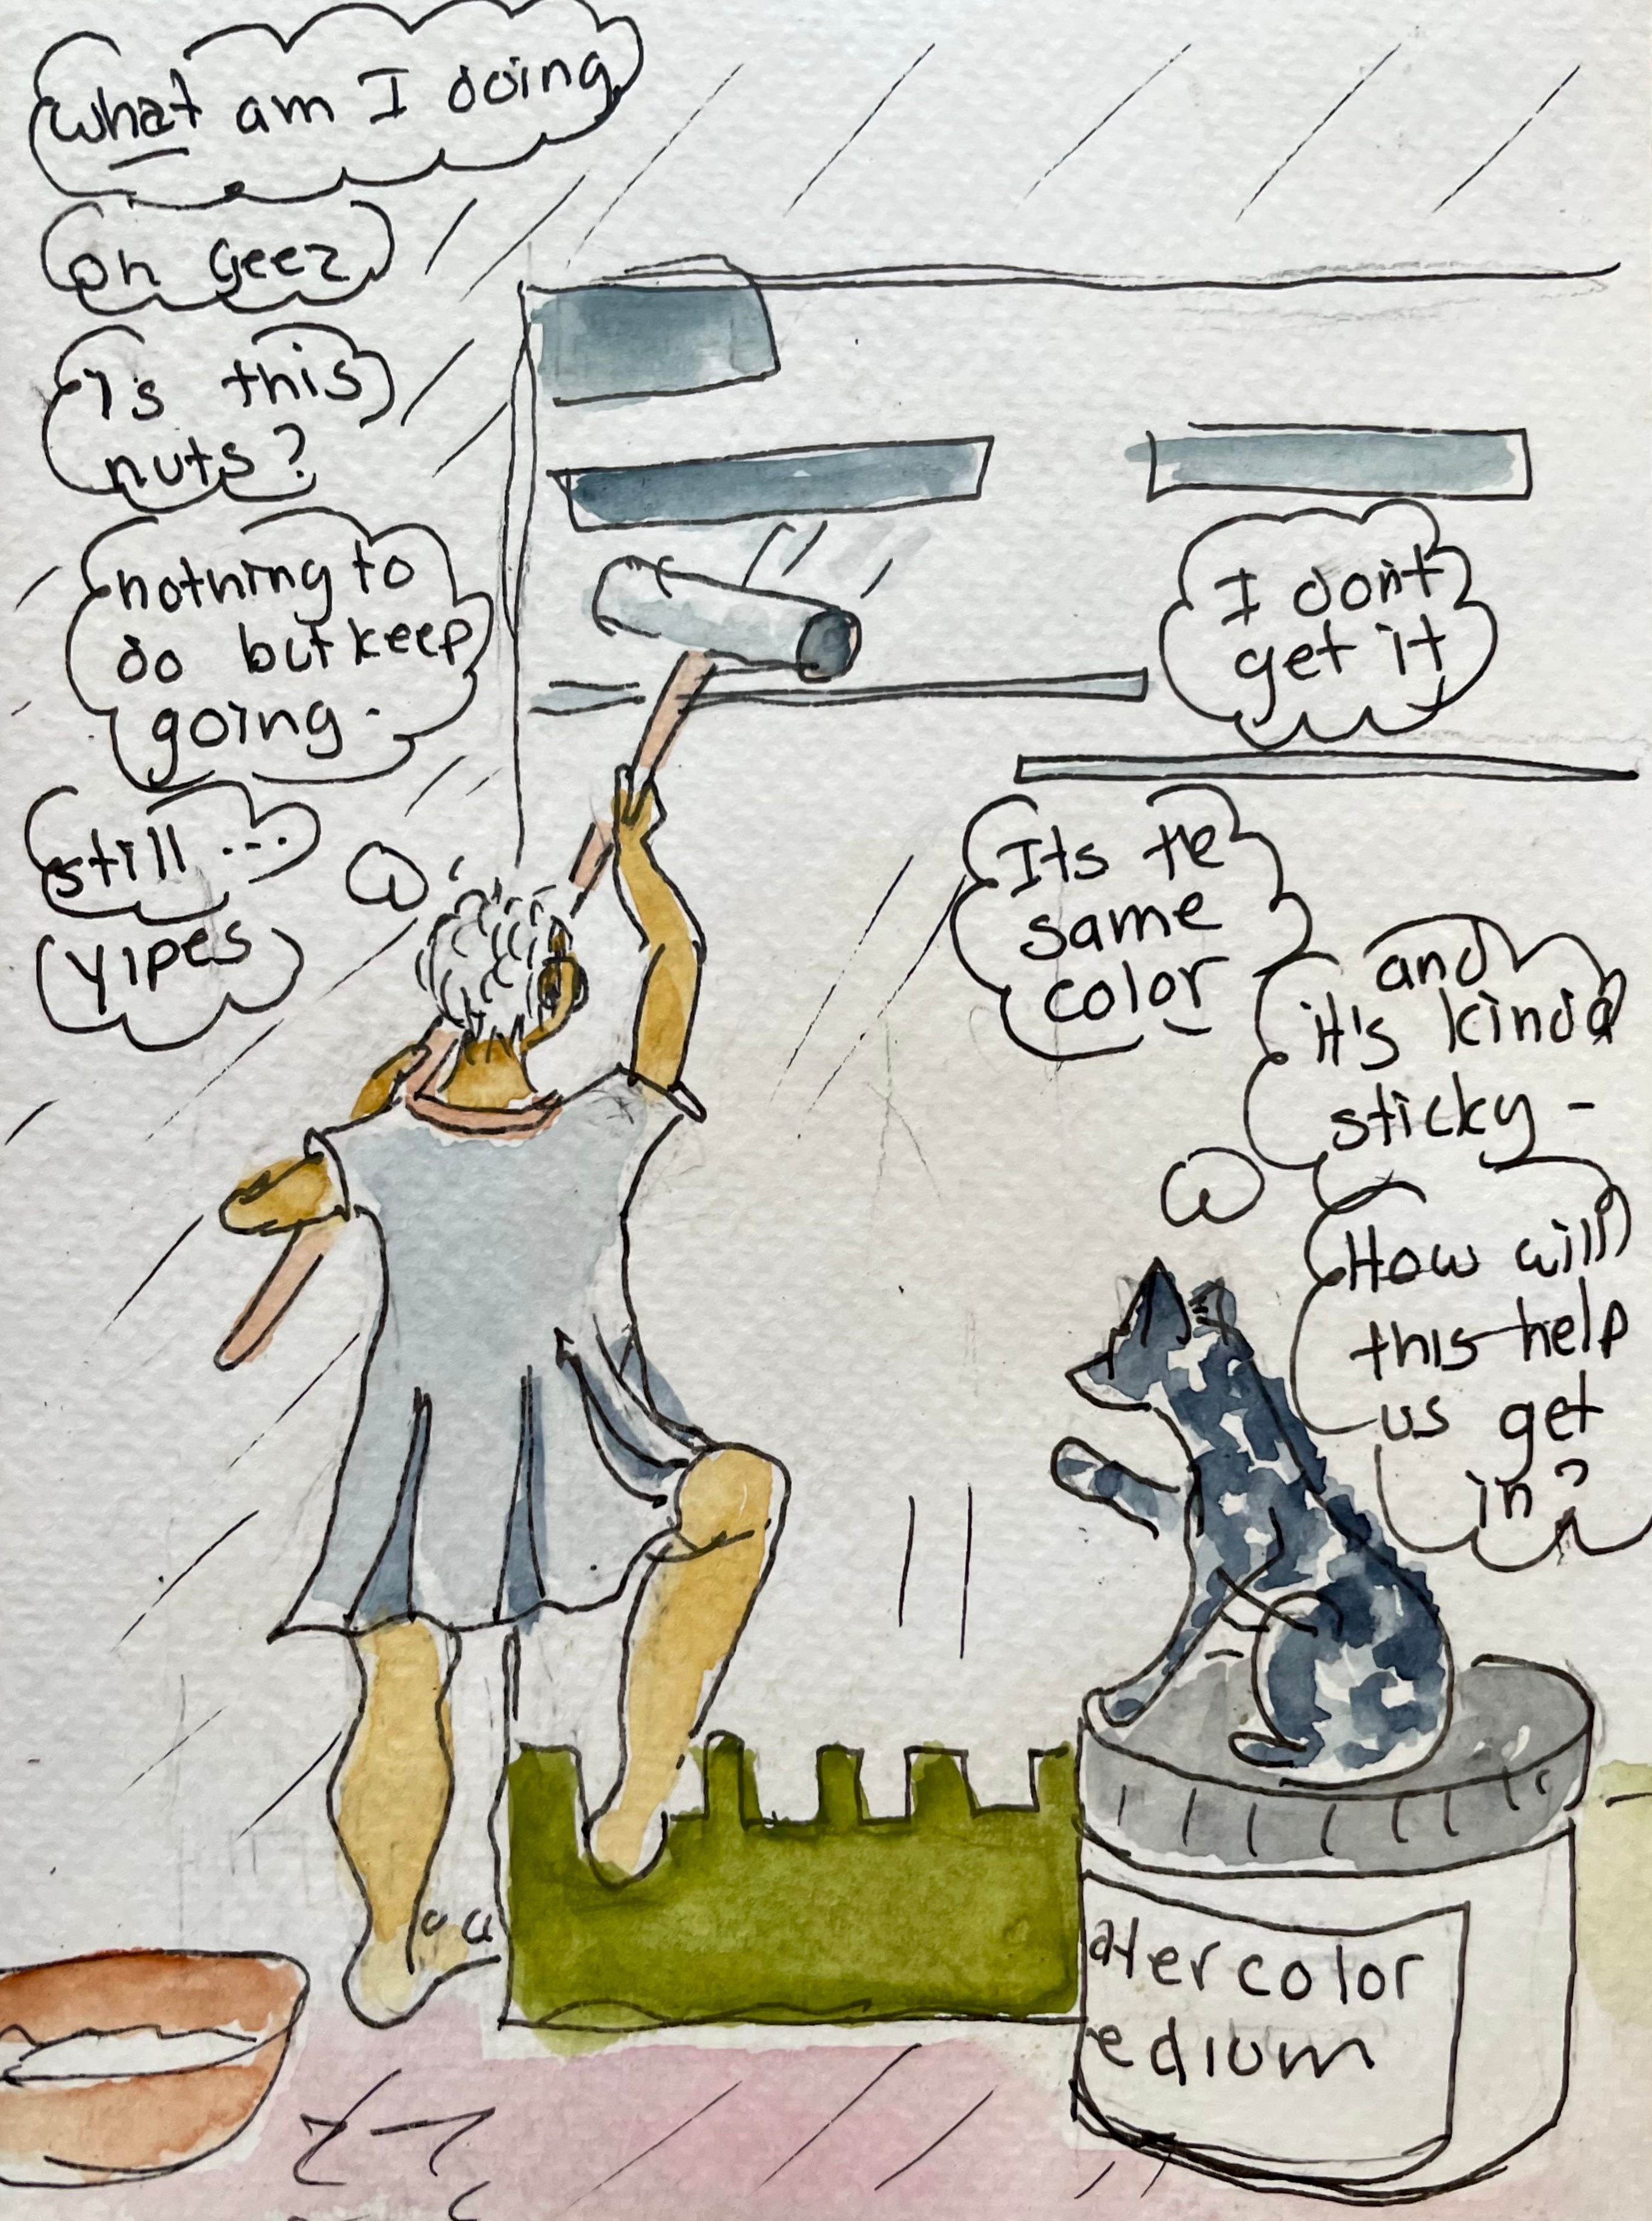 what am I doing
oh geez
Is this
nuts?
nothing to
do but keep
going -
still ...
yipes
I dont
get it
Its the
same
color
and
it's kinda
sticky -
How will
this help
us get
in?
atercolor
edium